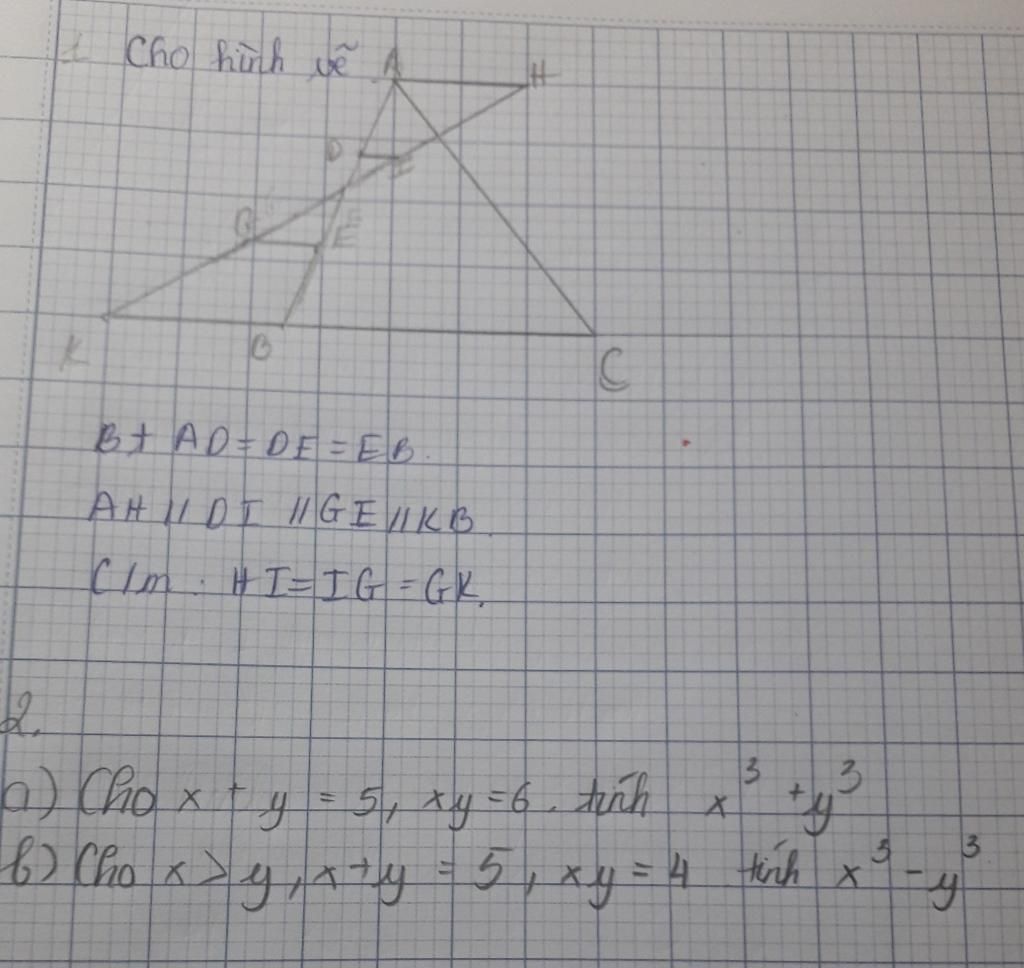 1 Cho hình vẽ
A H
D I
G E
K B C
Bt AD = DE = EB.
AH // DI // GE // KB.
C/m : HI = IG = GK.
2.
a) Cho x + y = 5, xy = 6. tính x³ + y³
b) Cho x > y, x + y = 5, xy = 4 tính x³ - y³